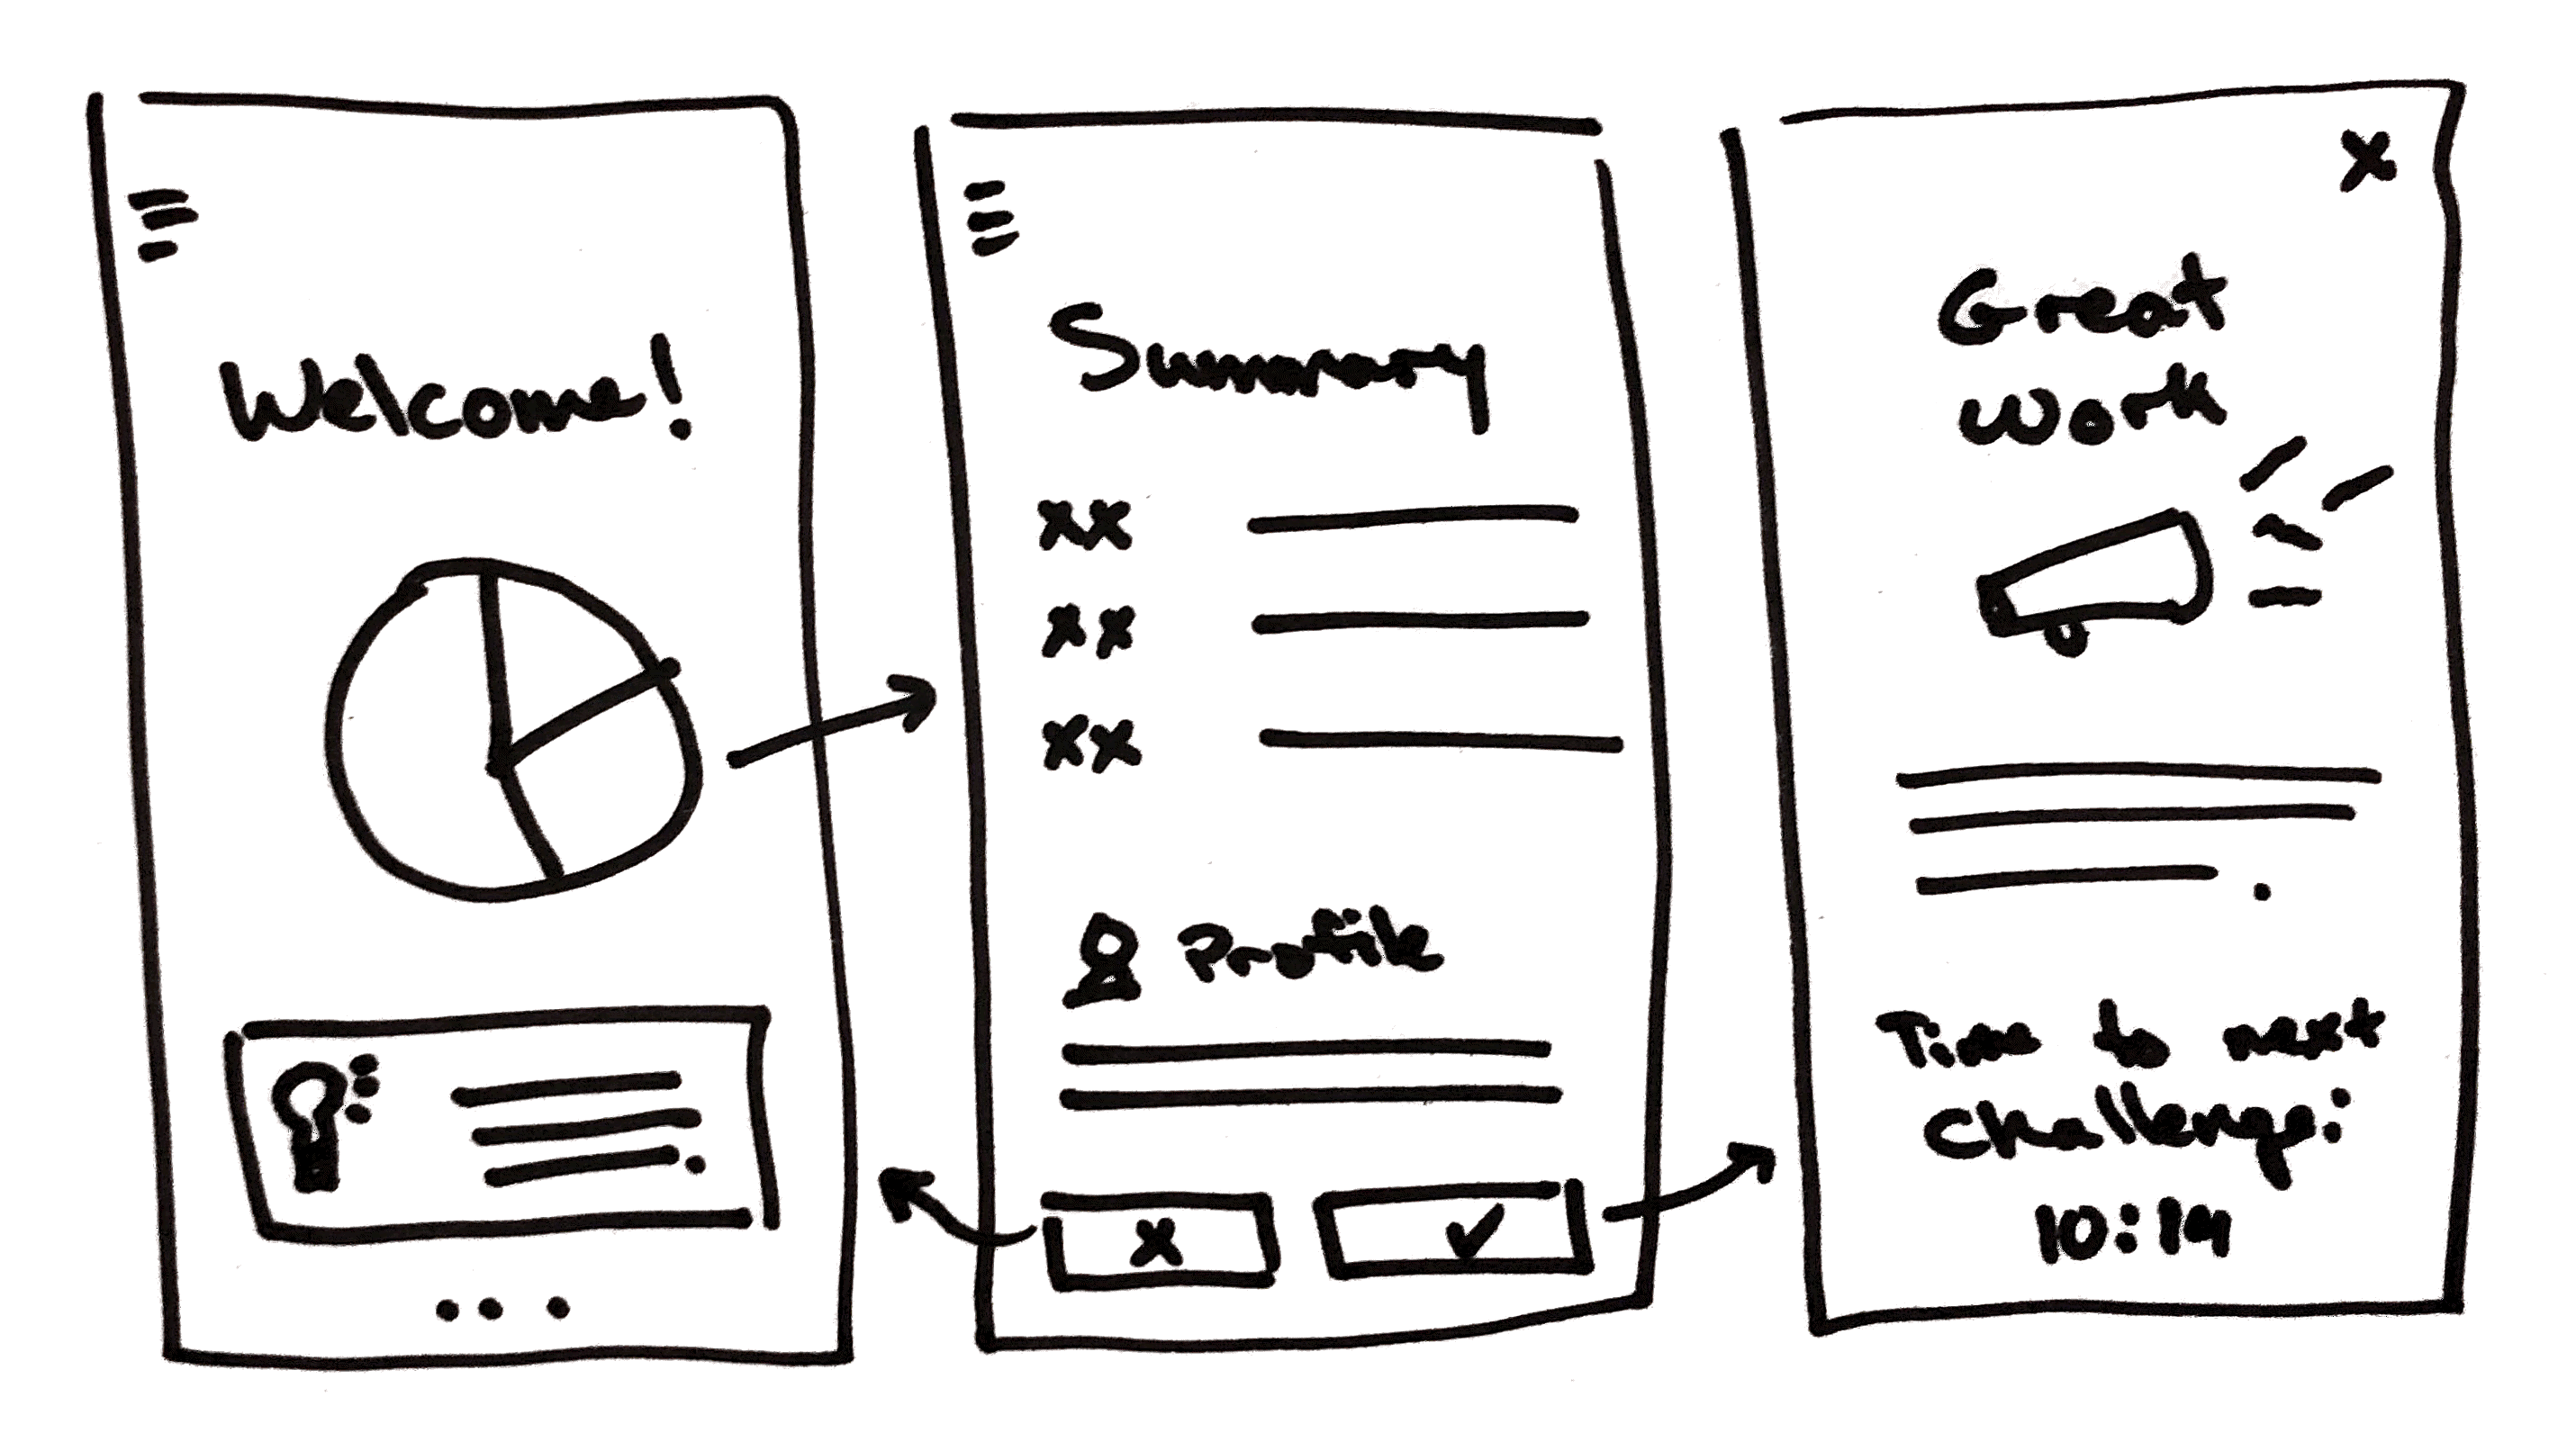 Welcome!
Summary
xx
xx
xx
Profile
x
Great
Work
Time to next
challenge:
10:14